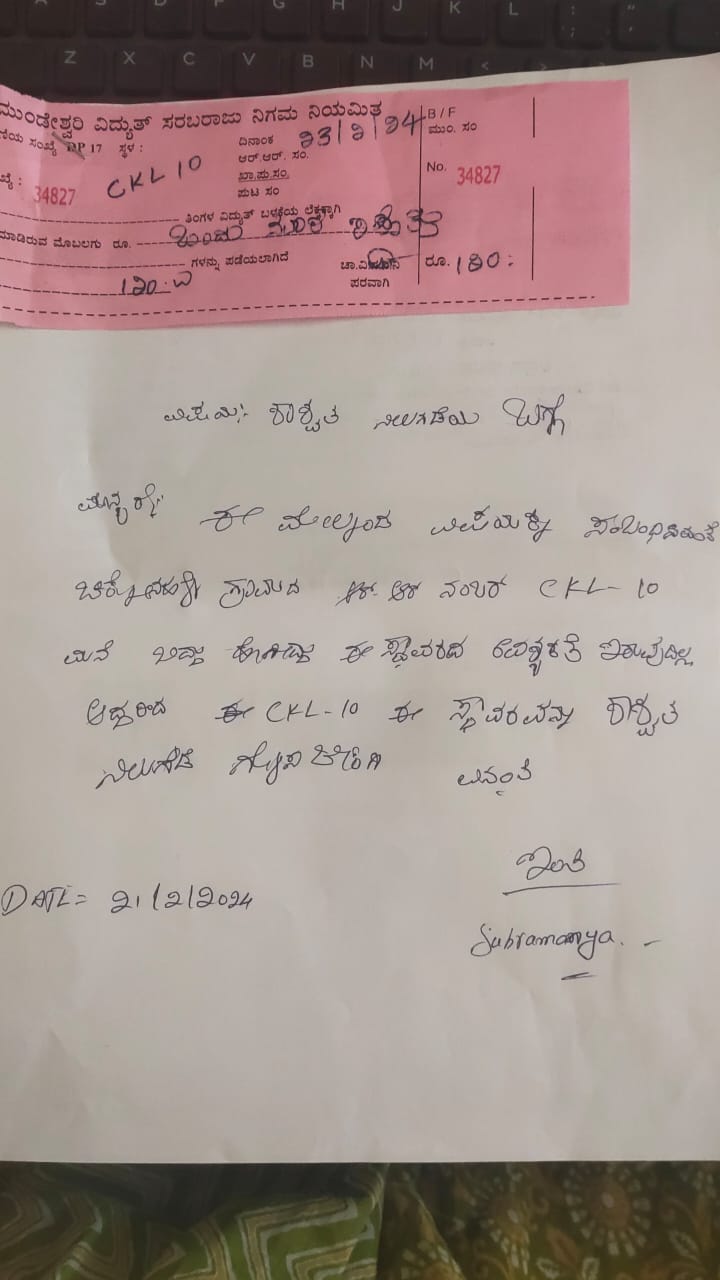 ಮುಂಡೇಶ್ವರಿ ವಿದ್ಯುತ್ ಸರಬರಾಜು ನಿಗಮ ನಿಯಮಿತ
ಸಂಖ್ಯೆ DP 17 ಸ್ಥಳ : CKL 10
ದಿನಾಂಕ 23/2/24
ಆರ್.ಆರ್. ಸಂ.
ಖಾ.ಪು.ಸಂ.
ಪುಟ ಸಂ
B / F
ಮುಂ. ಸಂ
34827
No. 34827
ತಿಂಗಳ ವಿದ್ಯುತ್ ಬಳಕೆಯ ಲೆಕ್ಕಕ್ಕಾಗಿ
ಮಾಡಿರುವ ಮೊಬಲಗು ರೂ. ಒಂದು ನೂರ
ಗಳನ್ನು ಪಡೆಯಲಾಗಿದೆ
ಪರವಾಗಿ
ರೂ.
ವಿಷಯ: ಶಾಶ್ವತ ನಿಲುಗಡೆಯ ಬಗ್ಗೆ
ಮಾನ್ಯರೇ
ಈ ಮೇಲ್ಕಂಡ ವಿಷಯಕ್ಕೆ ಸಂಬಂಧಿಸಿದಂತೆ
ಗ್ರಾಮದ ಆರ್ ಆರ್ ನಂಬರ್ CKL-10
ಮನೆ ಬಿದ್ದು ಹೋಗಿದ್ದು ಈ ಸ್ಥಾವರದ ಅವಶ್ಯಕತೆ ಇರುವುದಿಲ್ಲ
ಆದ್ದರಿಂದ ಈ CKL-10 ಈ ಸ್ಥಾವರವನ್ನು ಶಾಶ್ವತ
ನಿಲುಗಡೆ
ಇಂತಿ
DATE= 21/2/2024
Subramanya.